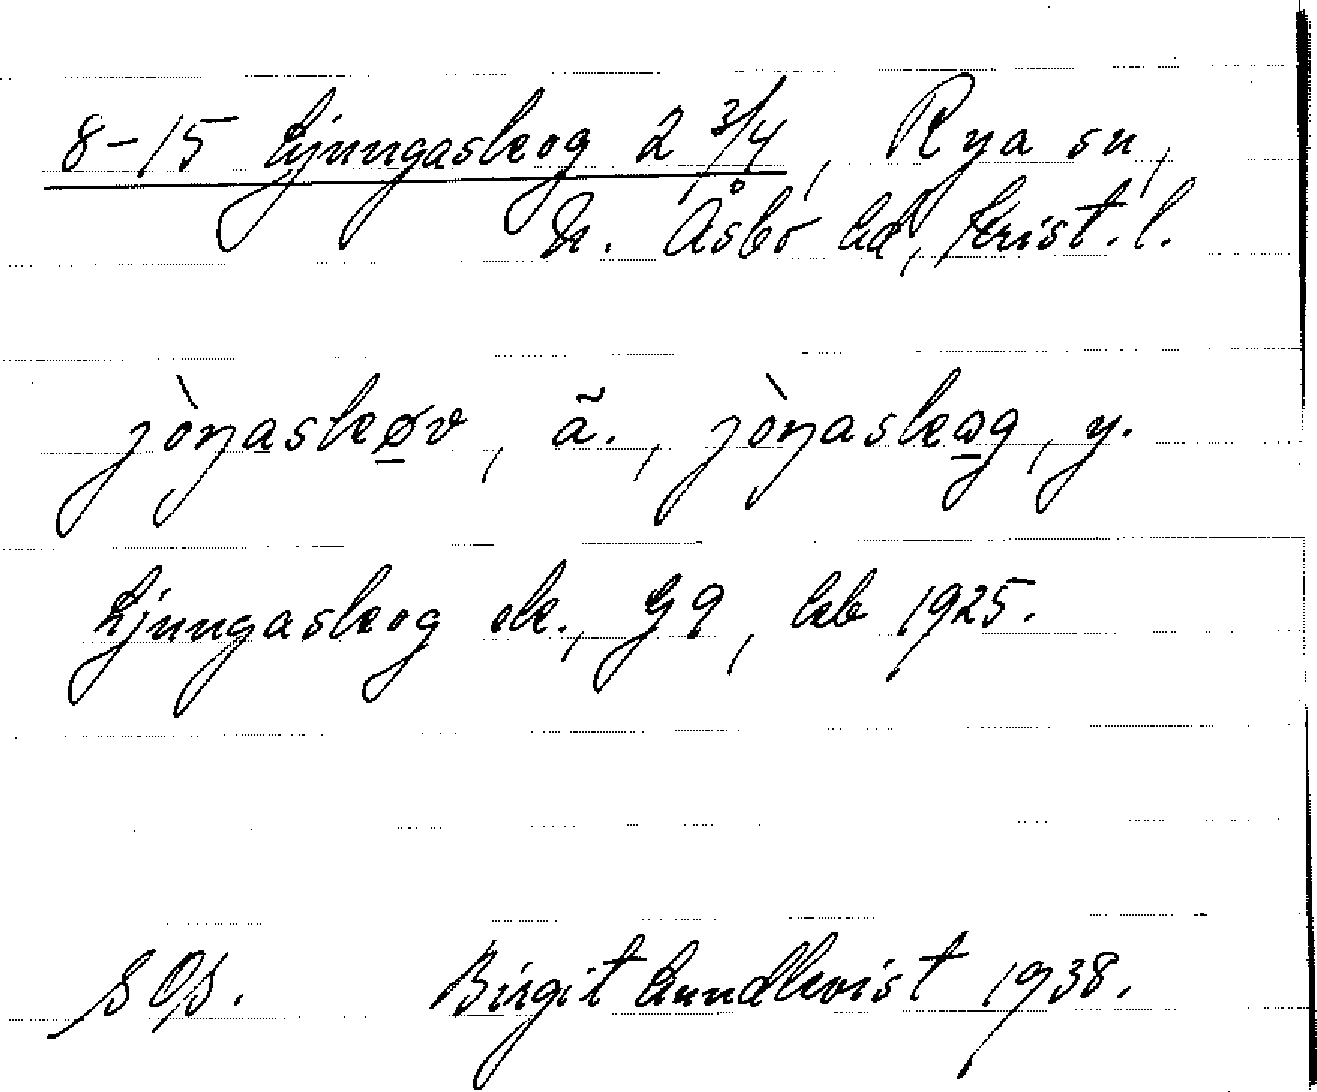 8-15 Ljungaskog 2 3/4, Rya sn,
N. Åsbo hd, Krist. l.
jòŋaskøv, ã., jòŋaskɷg, y.
Ljungaskog ek., G9, kb 1925.
SOS. Birgit Lundkvist 1938.